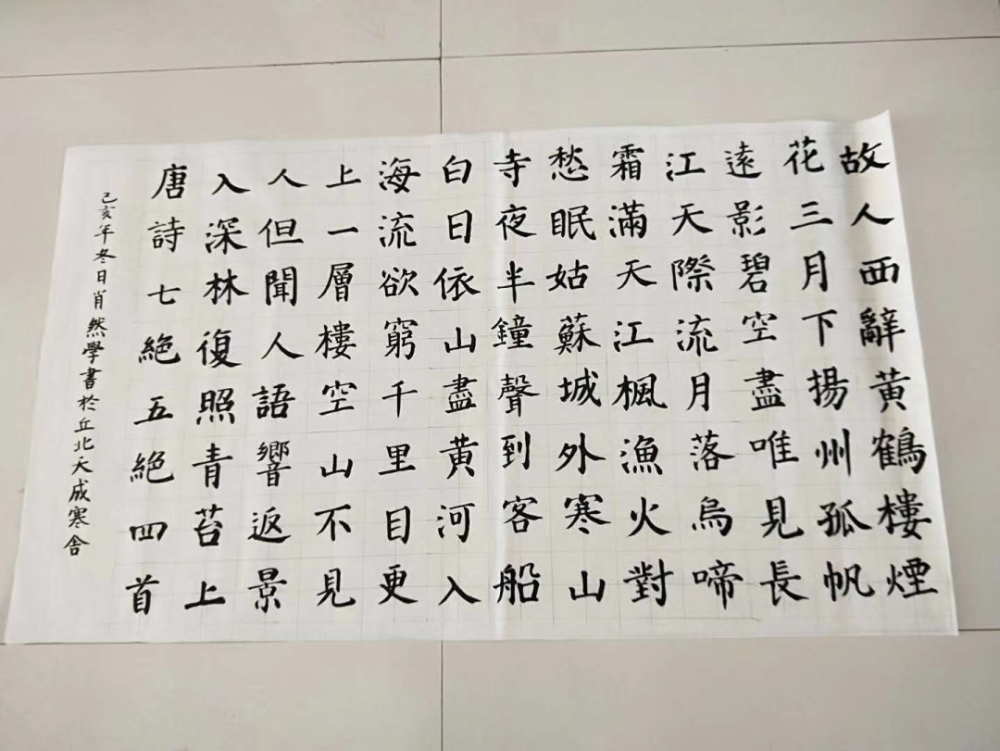 故人西辭黃鶴樓煙
花三月下揚州孤帆
遠影碧空盡唯見長
江天際流月落烏啼
霜滿天江楓漁火對
愁眠姑蘇城外寒山
寺夜半鐘聲到客船
白日依山盡黃河入
海流欲窮千里目更
上一層樓空山不見
人但聞人語響返景
入深林復照青苔上
唐詩七絕五絕四首
己亥年冬日肖然學書於丘北大成寒舍